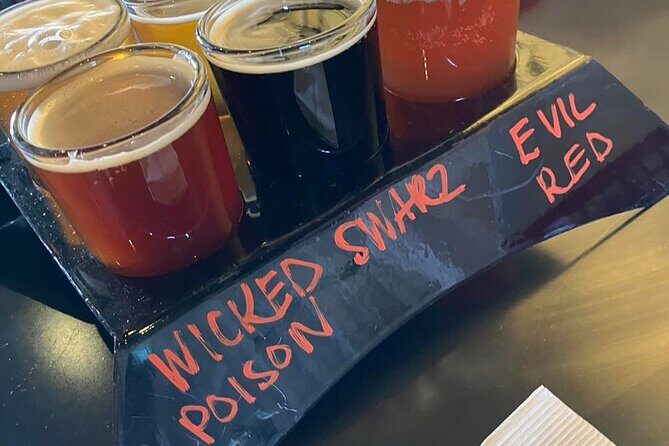 WICKED
POISON
SWARZ
EVIL
RED